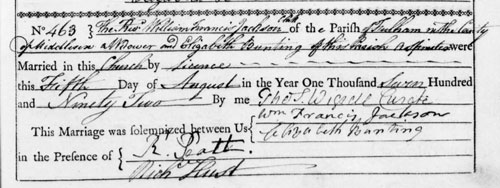 No 463 } The Revd William Francis Jackson Clerk of the Parish of Fulham in the County
of Middlesex a Bachelor and Elizabeth Bunting of this Parish a Spinster were
Married in this Church by Licence
this Fifth Day of August in the Year One Thousand Seven Hundred
and Ninety Two By me Thos. S. Curate
This Marriage was solemnized between Us { Wm Francis Jackson
Elizabeth Bunting
in the Presence of { R. Boatt.
Richd Hust